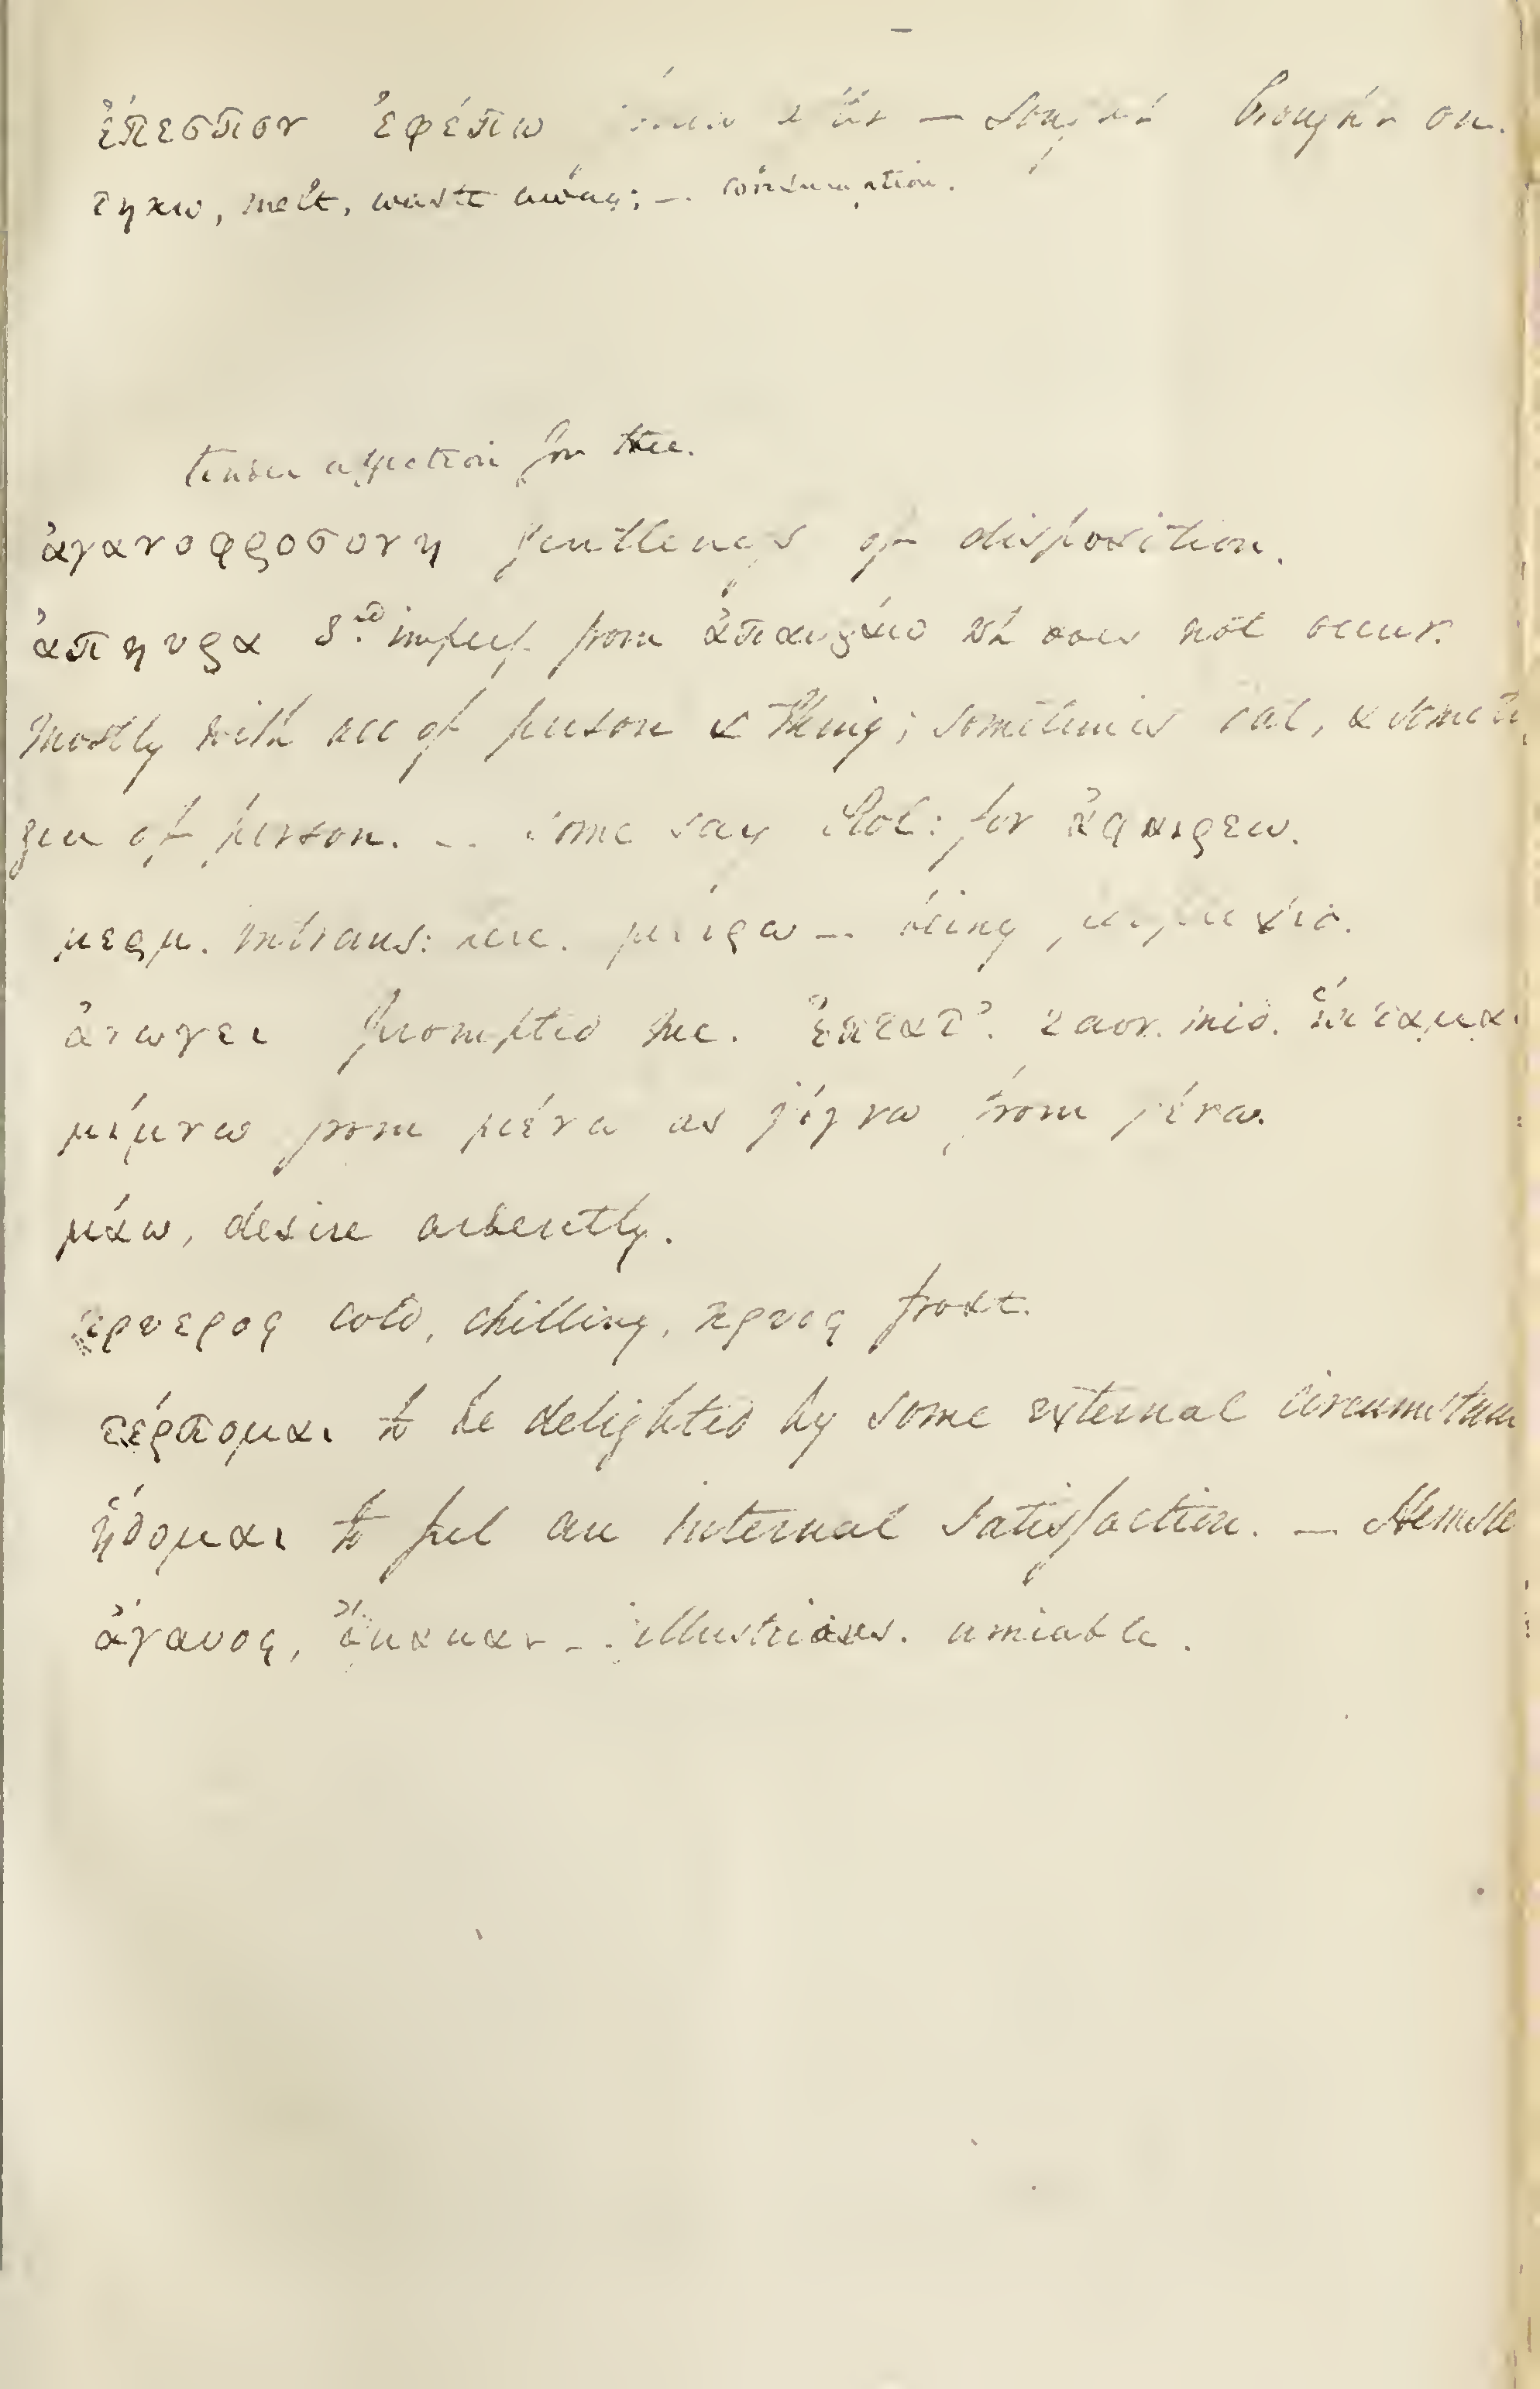 ἐπεσπον ἐφέπω — brought on.
τηκω, melt, waste away; — consumation.
tender affection for thee.
ἀγανοφροσυνη gentleness of disposition.
ἀπηυρα 3rd imperf. from ἀπαυράω wh does not occur.
Mostly with acc of person & thing; sometimes dat, & someti
gen of person. -. some say Æol: for ἀφαιρεω.
μερμ. intrans: here. — being
ἀνωγει prompted me. ἐπτατ'. 2 aor. mid. ἵπταμαι
μίμνω from μένω as γίγνω from γένω.
μάω, desire ardently.
κρυερος cold, chilling, κρυος frost.
τέρπομαι to be delighted by some external circumstan
ἥδομαι to feel an internal satisfaction. —
ἀγαυος, -. illustrious. amiable.